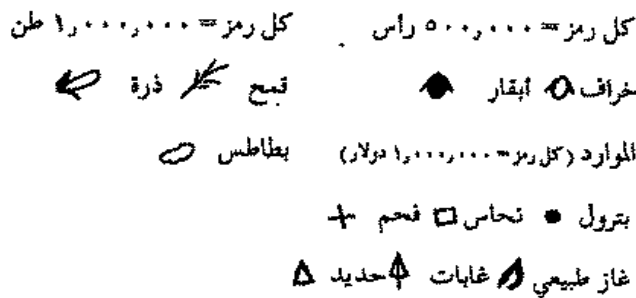 كل رمز = ٥٠٠,٠٠٠ رأس كل رمز = ١,٠٠٠,٠٠٠ طن
خراف أبقار قمح ذرة
الموارد (كل رمز = ١,٠٠٠,٠٠٠ دولار) بطاطس
بترول نحاس فحم
غاز طبيعي غابات حديد